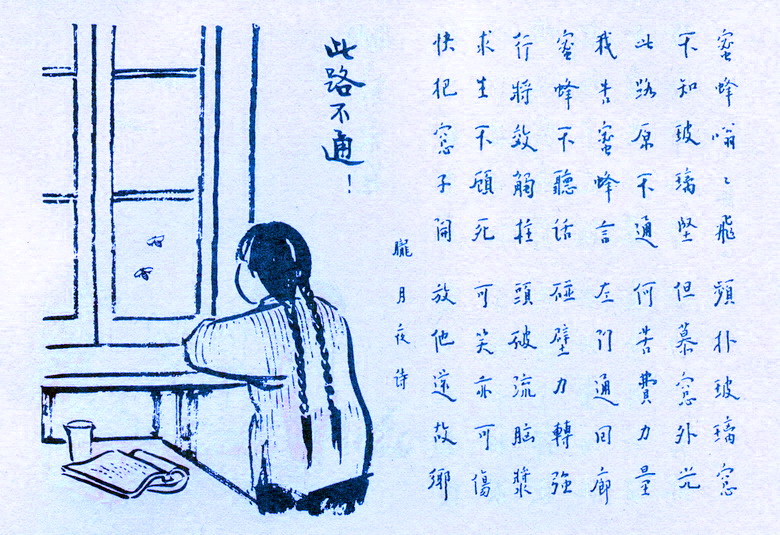 蜜蜂嗡々飛 頻扑玻璃窓
不知玻璃堅 但慕窓外光
此路原不通 何苦費力量
我告蜜蜂言 左門通回廊
蜜蜂不聽話 碰壁力轉強
行將效觸柱 頭破流脑漿
求生不顧死 可笑亦可傷
快把窓子開 放他故鄉
朧月夜詩
此路不通！